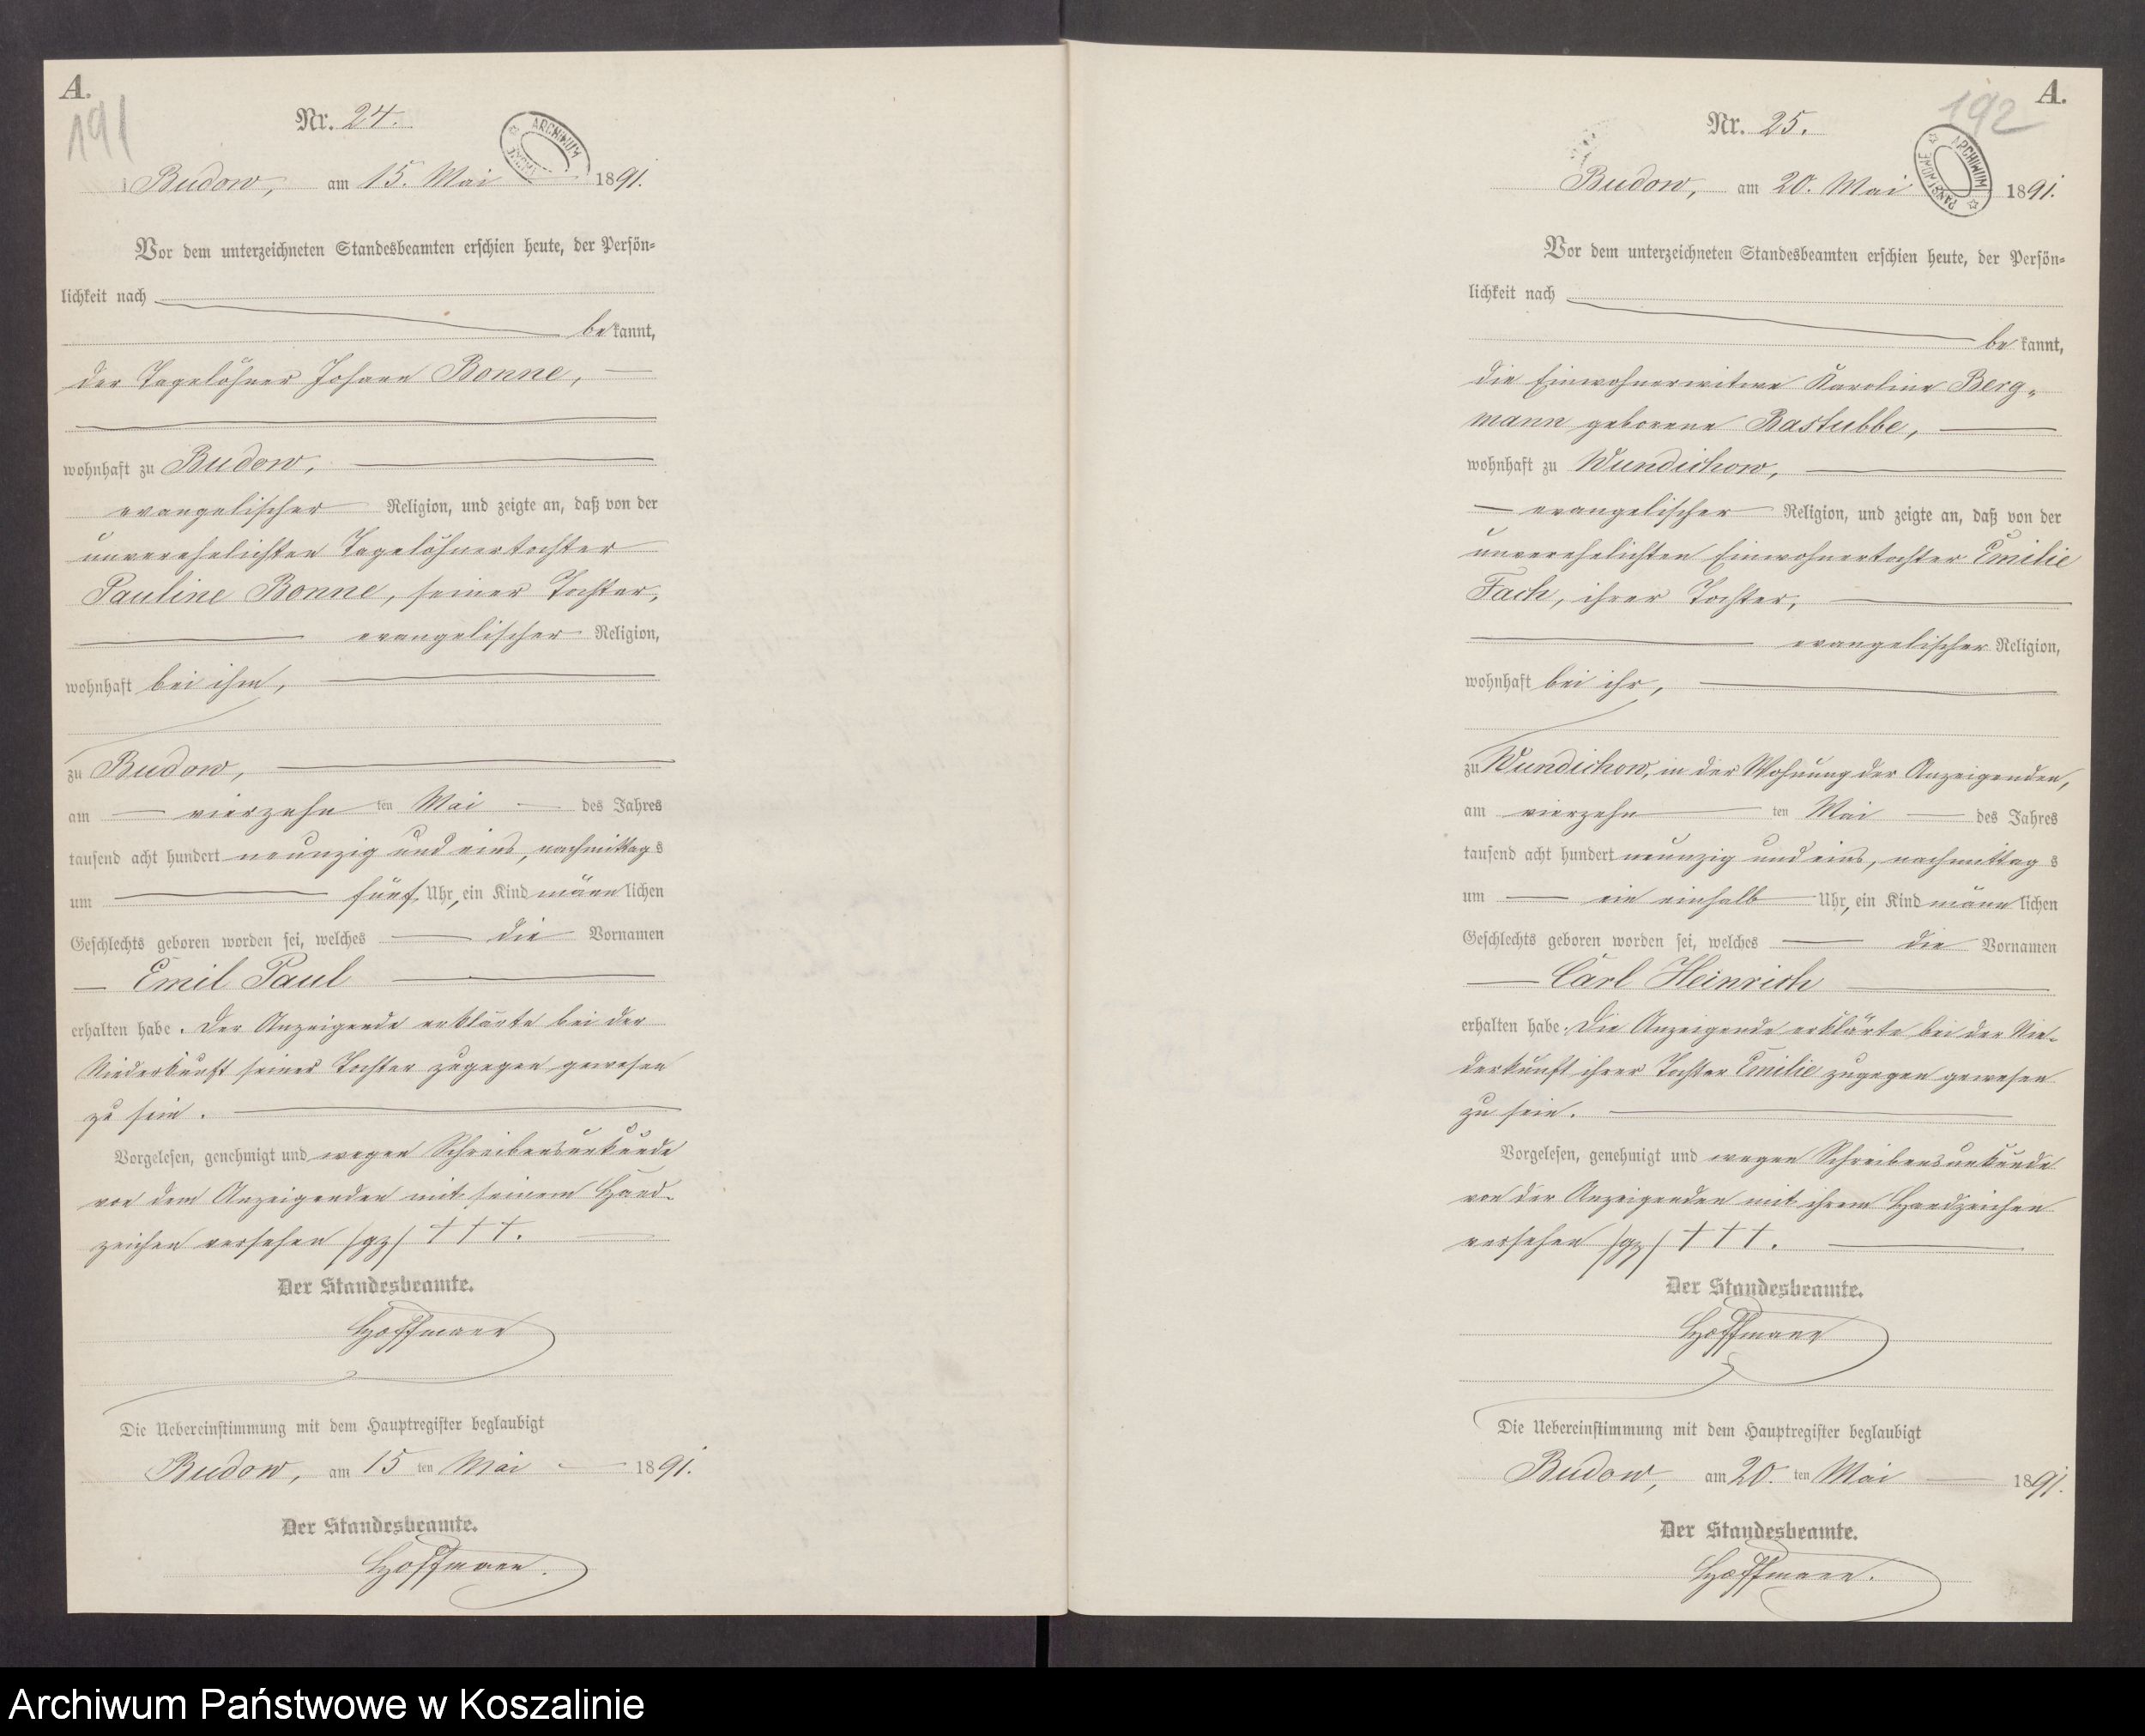 A.
191
Nr. 24.
ARCHIWUM
Budow, am 15. Mai 1891.
Vor dem unterzeichneten Standesbeamten erschien heute, der Persön-
lichkeit nach
bekannt,
der Tagelöhner Johann Bonne,
wohnhaft zu Budow,
evangelischer Religion, und zeigte an, daß von der
unverehelichten Tagelöhnertochter
Pauline Bonne, seiner Tochter,
evangelischer Religion,
wohnhaft bei ihm,
zu Budow,
am vierzehn ten Mai des Jahres
tausend acht hundert neunzig und eins, nachmittags
um fünf Uhr, ein Kind männlichen
Geschlechts geboren worden sei, welches die Vornamen
Emil Paul
erhalten habe. Der Anzeigende erklärte bei der
Niederkunft seiner Tochter zugegen gewesen
zu sein.
Vorgelesen, genehmigt und wegen Schreibensunkunde
von dem Anzeigenden mit seinem Hand-
zeichen versehen /gz/ † † †.
Der Standesbeamte.
Hoffmann
Die Uebereinstimmung mit dem Hauptregister beglaubigt
Budow, am 15 ten Mai 1891.
Der Standesbeamte.
Hoffmann.
A.
192
Nr. 25.
ARCHIWUM PAŃSTWOWE
Budow, am 20. Mai 1891.
Vor dem unterzeichneten Standesbeamten erschien heute, der Persön-
lichkeit nach
bekannt,
die Einwohnerwitwe Karoline Berg-
mann geborene Bastubbe,
wohnhaft zu Wundichow,
evangelischer Religion, und zeigte an, daß von der
unverehelichten Einwohnertochter Emilie
Fach, ihrer Tochter,
evangelischer Religion,
wohnhaft bei ihr,
zu Wundichow, in der Wohnung der Anzeigenden,
am vierzehn ten Mai des Jahres
tausend acht hundert neunzig und eins, nachmittags
um ein einhalb Uhr, ein Kind männlichen
Geschlechts geboren worden sei, welches die Vornamen
Carl Heinrich
erhalten habe. Die Anzeigende erklärte bei der Nie-
derkunft ihrer Tochter Emilie zugegen gewesen
zu sein.
Vorgelesen, genehmigt und wegen Schreibensunkunde
von der Anzeigenden mit ihrem Handzeichen
versehen /gz/ † † †.
Der Standesbeamte.
Hoffmann
Die Uebereinstimmung mit dem Hauptregister beglaubigt
Budow, am 20. ten Mai 1891.
Der Standesbeamte.
Hoffmann.
Archiwum Państwowe w Koszalinie